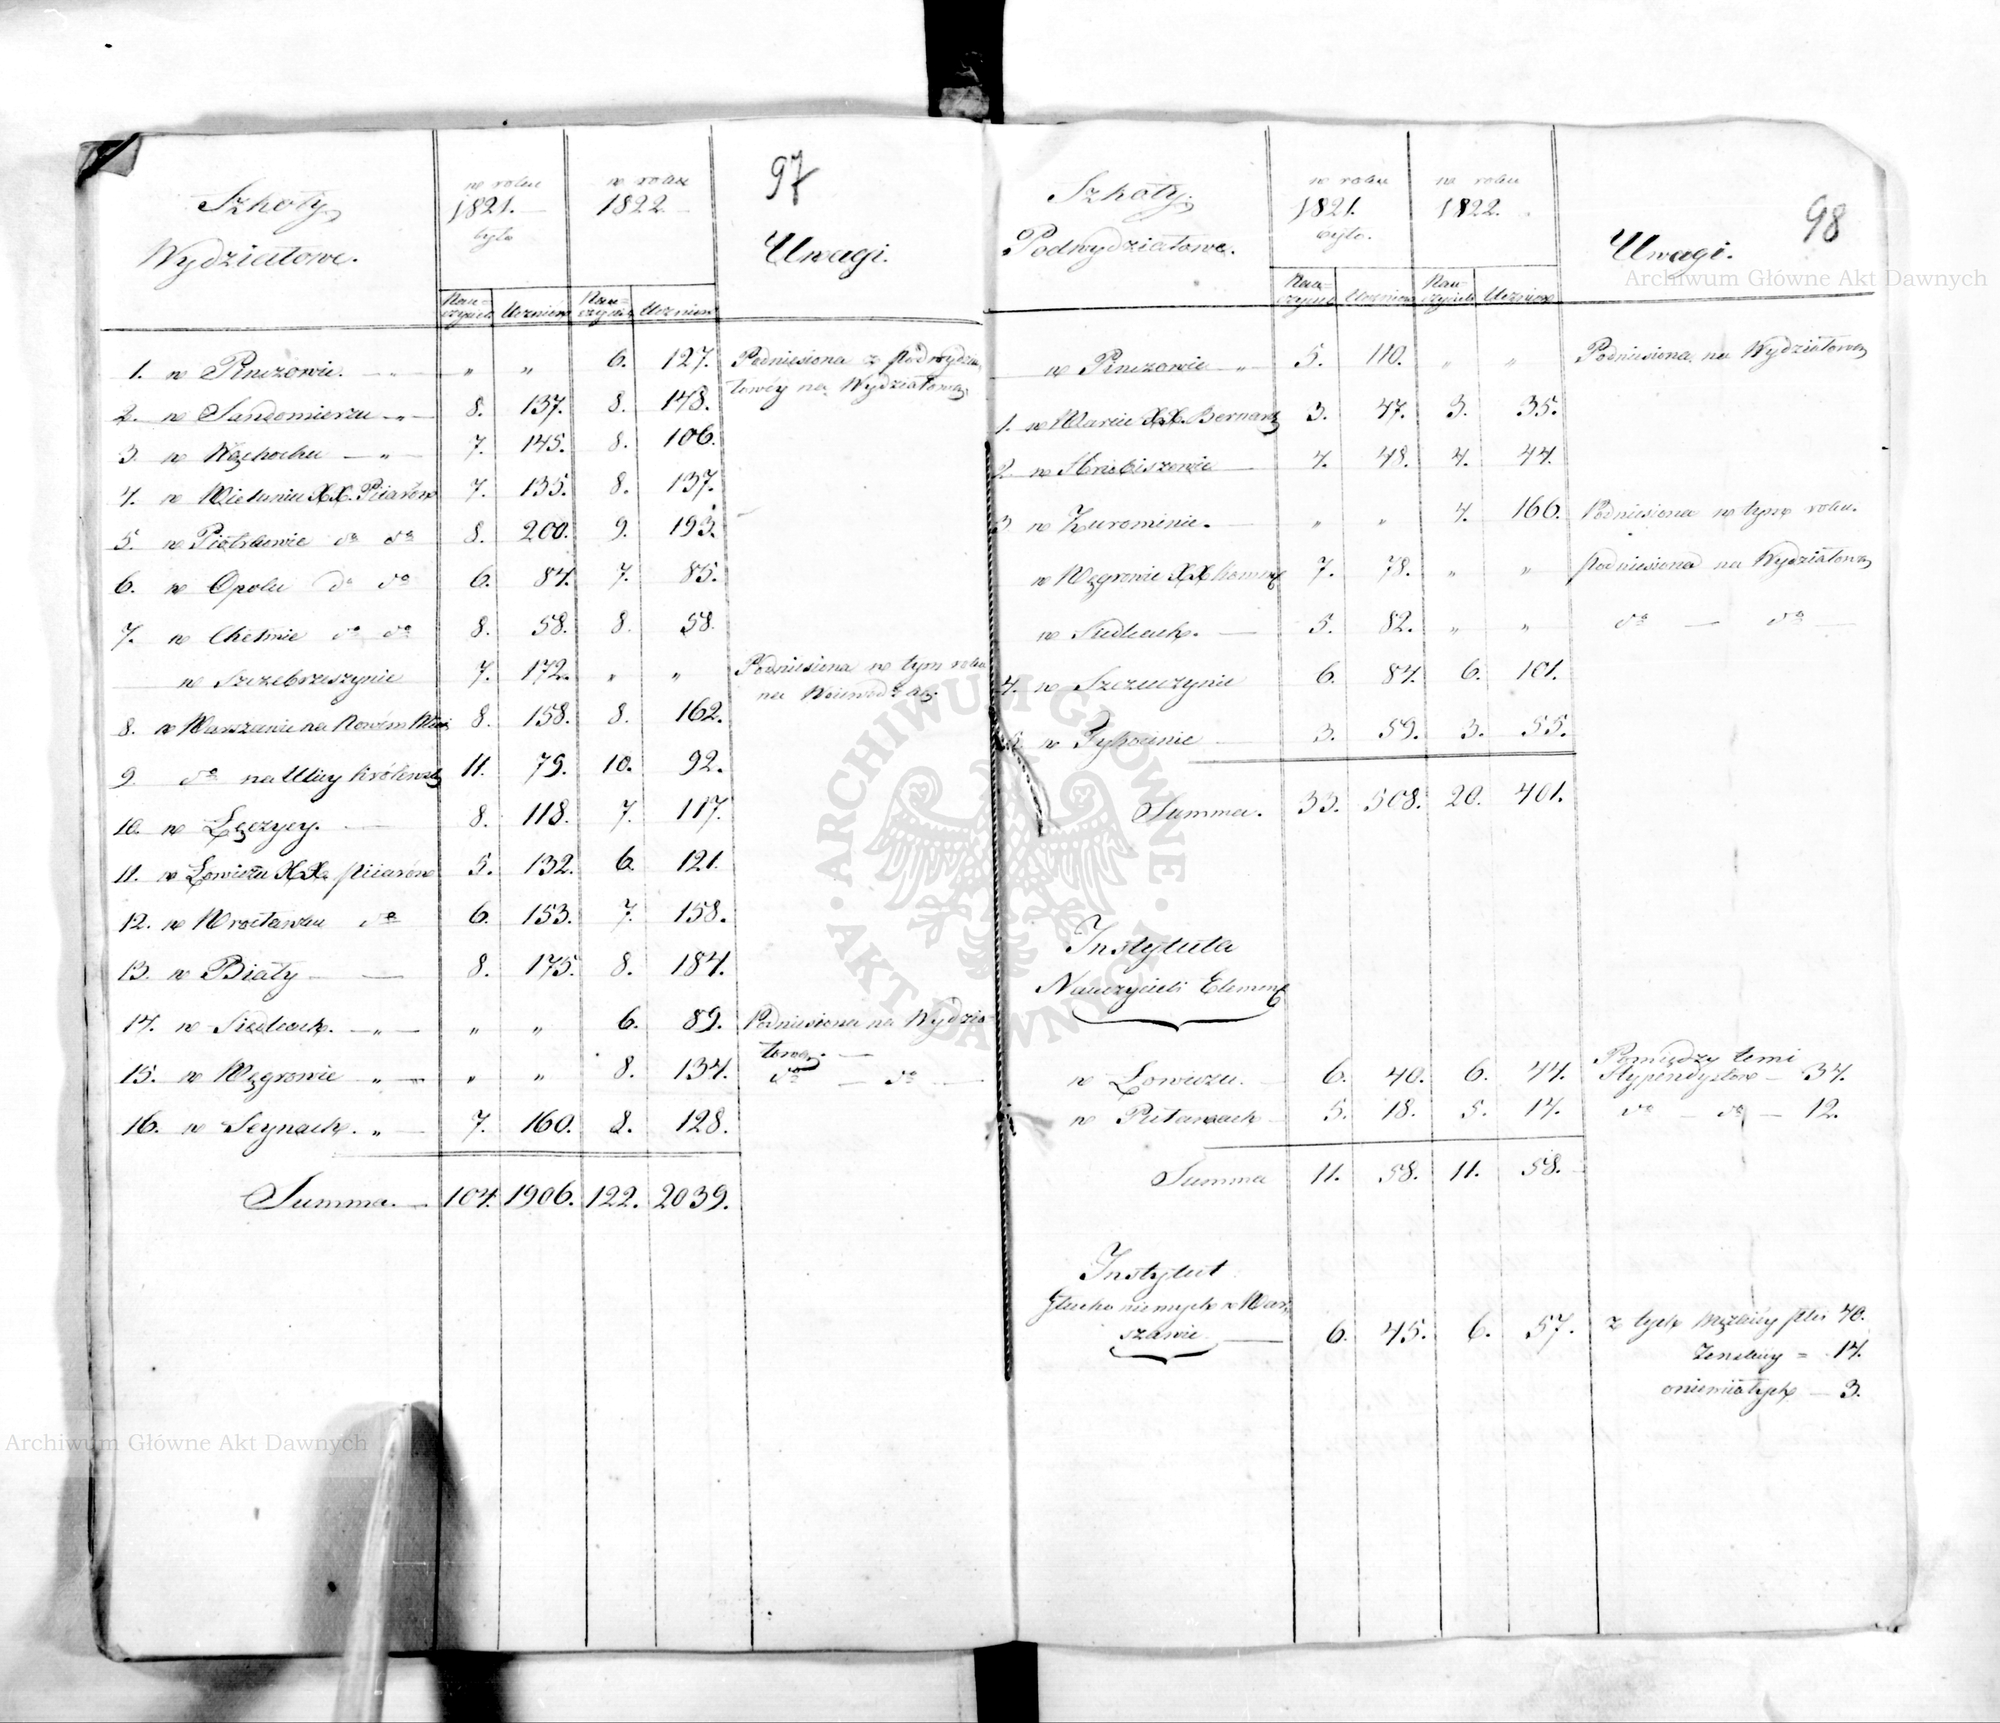 97
Szkoły
Wydziałowe.
w roku
1821.
było
w roku
1822.
Uwagi.
Nau=
czycieli
Uczniów
Nau=
czycieli
Uczniów
1. w Pinczowie. — „ — „ „ 6. 127. Podniesiona z podwydzia
łowéy na Wydziałową.
2. w Sandomierzu — „ — 8. 137. 8. 148.
3. w Wąchocku — „ — 7. 145. 8. 106.
4. w Wieluniu XX. Piiarów 7. 135. 8. 137.
5. w Piotrkowie do do 8. 200. 9. 193.
6. w Opolu do do 6. 84. 7. 85.
7. w Chełmie do do 8. 58. 8. 58.
w Szczebrzeszynie 7. 172. „ „ Podniesiona w tym roku
na Woiewódzką
8. w Warszawie na Nowém Mieś 8. 158. 8. 162.
9. do na Ulicy Królewsk 11. 79. 10. 92.
10. w Łęczycy. — 8. 118. 7. 117.
11. w Łowiczu XX. Piiarów 5. 132. 6. 121.
12. w Włocławku do 6. 153. 7. 158.
13. w Biały — — 8. 175. 8. 184.
14. w Siedlcach. — „ — „ „ 6. 89. Podniesiona na Wydzia
łową. —
15. w Węgrowie „ — „ „ 8. 134. do — do —
16. w Seynach. „ — 7. 160. 8. 128.
Summa. — 104. 1906. 122. 2039.
98
Szkoły.
Podwydziałowe.
w roku
1821.
było.
w roku
1822.
Uwagi.
Nau=
czycieli
Uczniów
Nau=
czycieli
Uczniów
w Pinczowie „ 5. 110. „ „ Podniesiona na Wydziałową
1. w Warcie XX. Bernard 3. 47. 3. 35.
2. w Hrubieszowie — 4. 48. 4. 44.
3 w Żurominie. „ „ 4. 166. Podniesiona w tym roku.
w Węgrowie XX Komm 7. 78. „ „ podniesiona na Wydziałową
w Siedlcach. — 5. 82. „ „ do — do —
4. w Szczuczynie 6. 84. 6. 101.
5. w Tykocinie — 3. 59. 3. 55.
Summa. 33. 508. 20. 401.
Instytuta
Nauczycieli Element
w Łowiczu. 6. 40. 6. 44. Pomiędzy temi
Stypendystów — 34.
w Puławach 5. 18. 5. 14. do — do — 12.
Summa 11. 58. 11. 58.
Instytut
Głucho niemych w War=
szawie — 6. 45. 6. 57. z tych Męzkiéy płci 40.
Zenskiey = 14.
oniemiałych — 3.
Archiwum Główne Akt Dawnych
Archiwum Główne Akt Dawnych
· ARCHIWUM GŁÓWNE · AKT DAWNYCH